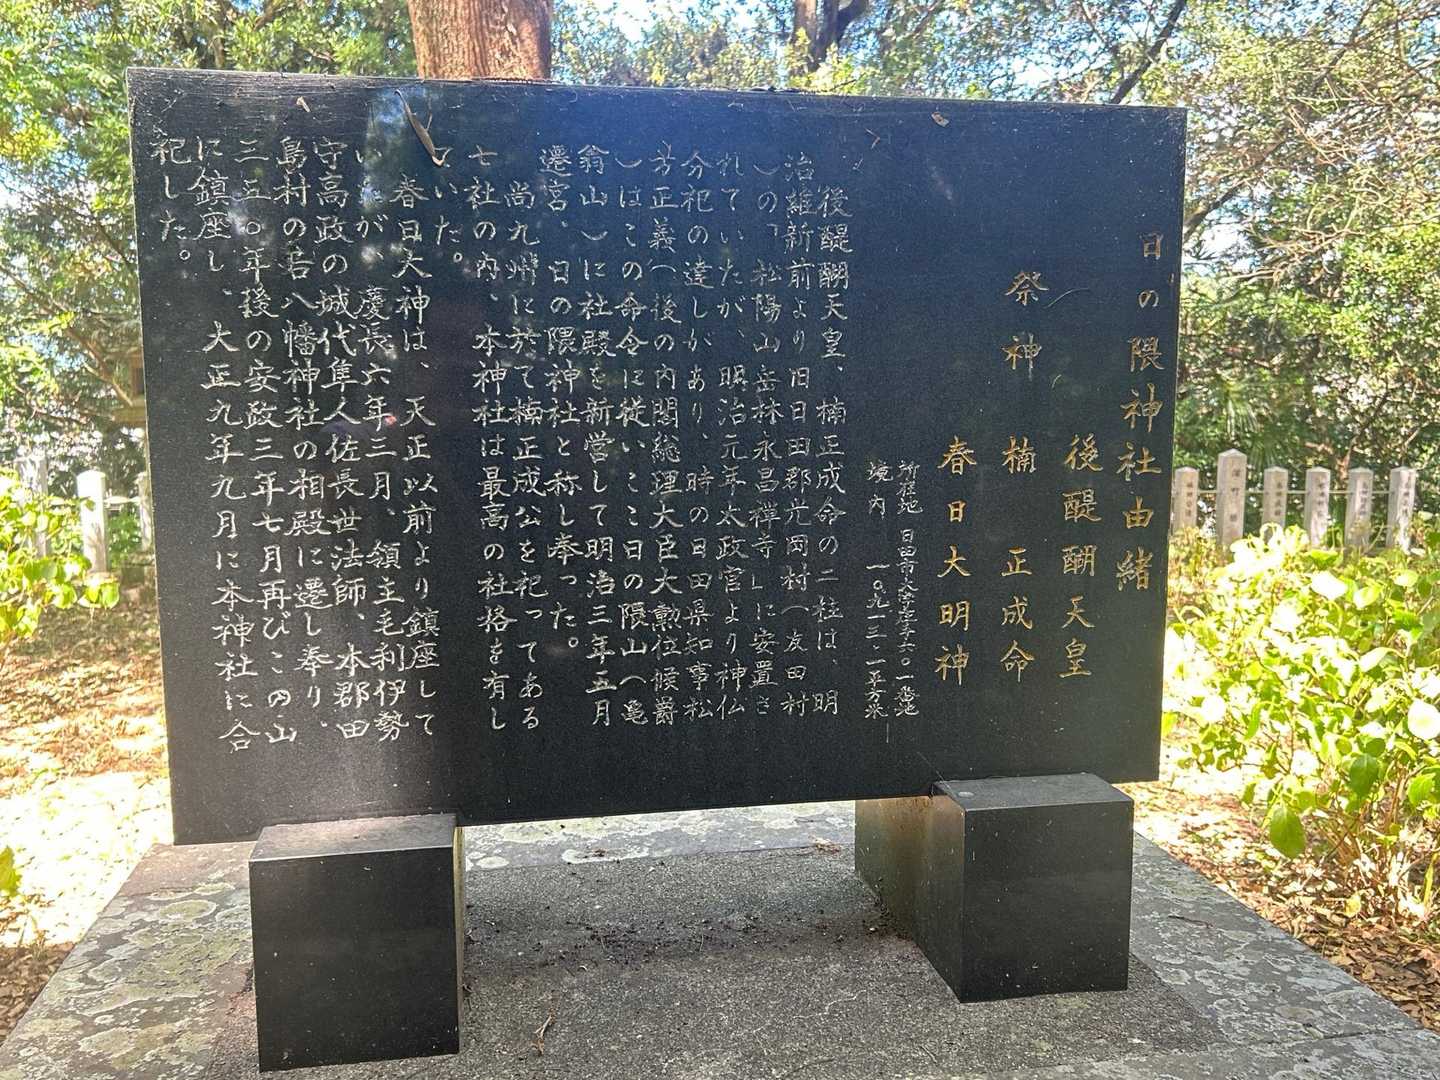 日の隈神社由緒
後醍醐天皇
祭神 楠正成命
春日大明神
所在地 日田市大字友田三六〇一番地
境内 一〇九一三・一平方米
後醍醐天皇、楠正成命の二柱は、明
治維新前より旧日田郡光岡村(友田村
)の「松陽山岳林永昌禅寺」に安置さ
れていたが、明治元年太政官より神仏
分祀の達しがあり、時の日田県知事松
方正義(後の内閣総理大臣大勲位候爵
)はこの命令に従いここ日の隈山(亀
翁山)に社殿を新営して明治三年五月
遷宮、日の隈神社と称し奉った。
尚九州に於て楠正成公を祀ってある
七社の内、本神社は最高の社格を有し
ていた。
春日大神は、天正以前より鎮座して
いたが、慶長六年三月、領主毛利伊勢
守高政の城代隼人佐長世法師、本郡田
島村の若八幡神社の相殿に遷し奉り、
三五〇年後の安政三年七月再びこの山
に鎮座し、大正九年九月に本神社に合
祀した。